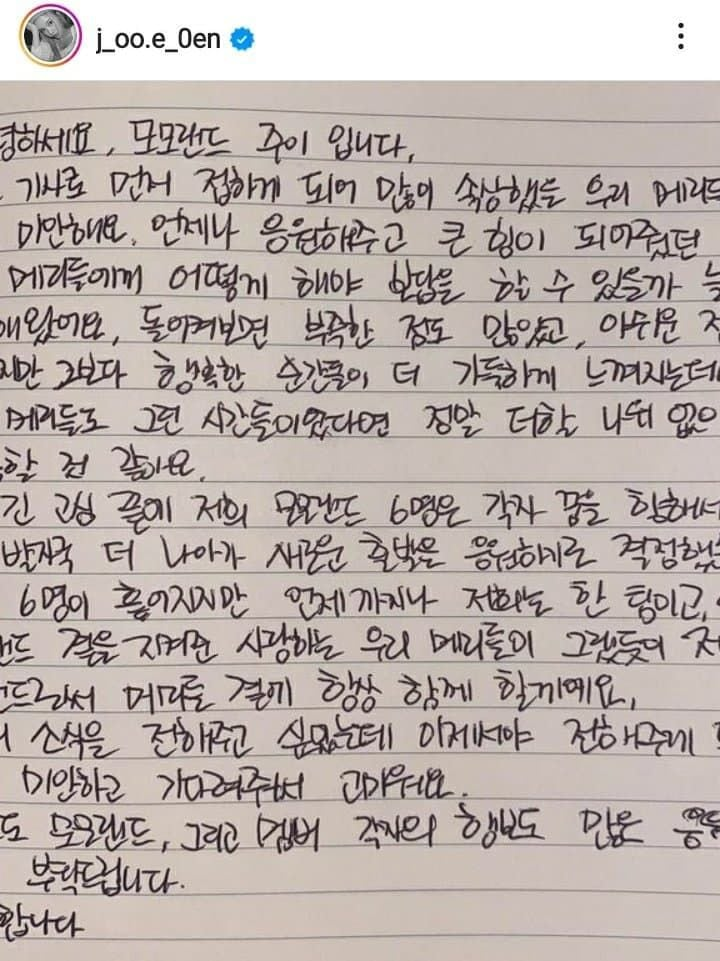 j_oo.e_0en
녕하세요, 모모랜드 주이 입니다,
기사로 먼저 접하게 되어 많이 속상했을 우리 메리들
미안해요. 언제나 응원해주고 큰 힘이 되어줬던
메리들에게 어떻게 해야 보답을 할 수 있을까 늘
해왔어요, 돌이켜보면 부족한 점도 많았고, 아쉬운 점
지만 그보다 행복한 순간들이 더 가득하게 느껴지는데
메리들도 그런 시간들이였다면 정말 더할 나위 없으
할 것 같아요.
긴 고심 끝에 저희 모모랜드 6명은 각자 꿈을 향해서
발자국 더 나아가 새로운 출발을 응원하기로 결정했
6명이 흩어지지만 언제까지나 저희는 한 팀이고,
랜드 곁을 지켜준 사랑하는 우리 메리들이 그랬듯이 저
랜드로서 메리들 곁에 항상 함께 할게예요,
소식을 전해주고 싶었는데 이제서야 전해주게
미안하고 기다려줘서 고마워요.
도 모모랜드, 그리고 멤버 각자의 행보도 많은 응원
부탁드립니다.
합니다